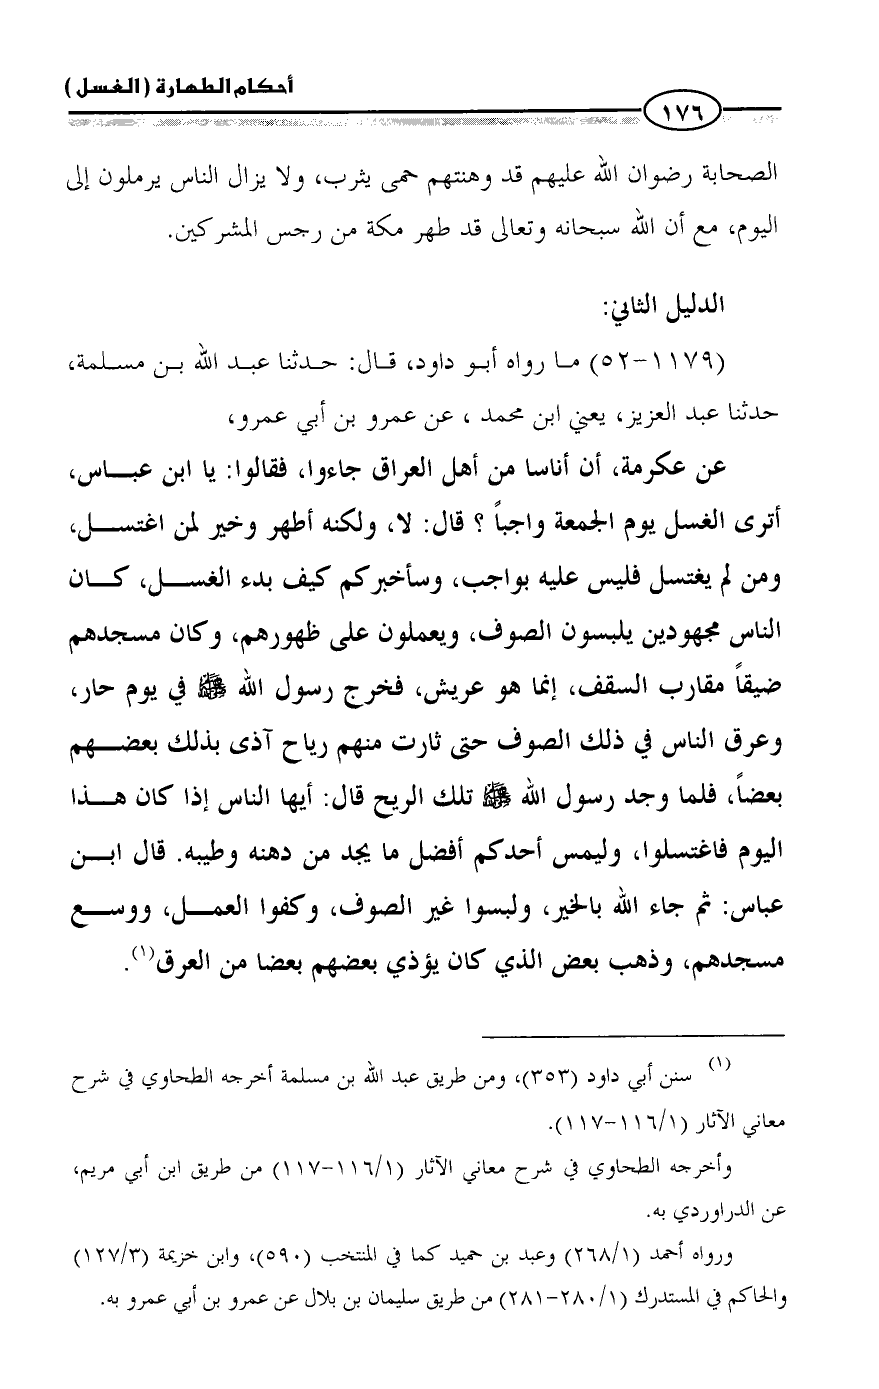 أحكام الطهارة (الغسل)
١٧٦
الصحابة رضوان الله عليهم قد وهنتهم حمى يثرب، ولا يزال الناس يرملون إلى
اليوم، مع أن الله سبحانه وتعالى قد طهر مكة من رجس المشركين.
الدليل الثاني:
(١١٧٩-٥٢) ما رواه أبو داود، قال: حدثنا عبد الله بن مسلمة،
حدثنا عبد العزيز، يعني ابن محمد ، عن عمرو بن أبي عمرو،
عن عكرمة، أن أناسا من أهل العراق جاءوا، فقالوا: يا ابن عباس،
أترى الغسل يوم الجمعة واجباً ؟ قال: لا، ولكنه أطهر وخير لمن اغتسل،
ومن لم يغتسل فليس عليه بواجب، وسأخبركم كيف بدء الغسل، كان
الناس مجهودين يلبسون الصوف، ويعملون على ظهورهم، وكان مسجدهم
ضيقاً مقارب السقف، إنما هو عريش، فخرج رسول الله ﷺ في يوم حار،
وعرق الناس في ذلك الصوف حتى ثارت منهم رياح آذى بذلك بعضهم
بعضاً، فلما وجد رسول الله ﷺ تلك الريح قال: أيها الناس إذا كان هذا
اليوم فاغتسلوا، وليمس أحدكم أفضل ما يجد من دهنه وطيبه. قال ابن
عباس: ثم جاء الله بالخير، ولبسوا غير الصوف، وكفوا العمل، ووسع
مسجدهم، وذهب بعض الذي كان يؤذي بعضهم بعضا من العرق(١).
(١) سنن أبي داود (٣٥٣)، ومن طريق عبد الله بن مسلمة أخرجه الطحاوي في شرح
معاني الآثار (١١٦/١-١١٧).
وأخرجه الطحاوي في شرح معاني الآثار (١١٦/١-١١٧) من طريق ابن أبي مريم،
عن الدراوردي به.
ورواه أحمد (٢٦٨/١) وعبد بن حميد كما في المنتخب (٥٩٠)، وابن خزيمة (١٢٧/٣)
والحاكم في المستدرك (٢٨٠/١-٢٨١) من طريق سليمان بن بلال عن عمرو بن أبي عمرو به.